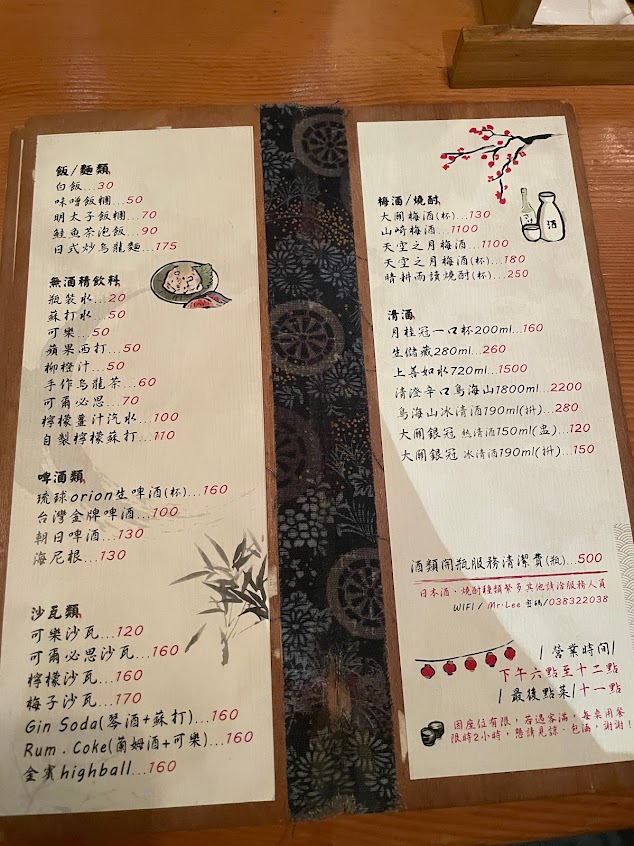 飯/麵類
白飯...30
味噌飯糰...50
明太子飯糰...70
鮭魚茶泡飯...90
日式炒烏龍麵...175
無酒精飲料
瓶裝水...20
蘇打水...50
可樂...50
蘋果西打...50
柳橙汁...50
手作烏龍茶...60
可爾必思...70
檸檬薑汁汽水...100
自製檸檬蘇打...110
啤酒類
琉球orion生啤酒(杯)...160
台灣金牌啤酒...100
朝日啤酒...130
海尼根...130
沙瓦類
可樂沙瓦...120
可爾必思沙瓦...160
檸檬沙瓦...160
梅子沙瓦...170
Gin Soda(琴酒+蘇打)...160
Rum.Coke(蘭姆酒+可樂)...160
金賓highball...160
梅酒/燒酎
大關梅酒(杯)...130
山崎梅酒...1100
天空之月梅酒...1100
天空之月梅酒(杯)...180
晴耕雨讀燒酎(杯)...250
酒
清酒
月桂冠一口杯200ml...160
生儲藏280ml...260
上善如水720ml...1500
清澄辛口鳥海山1800ml...2200
鳥海山冰清酒190ml(拼)...280
大關銀冠 熱清酒150ml(盅)...120
大關銀冠 冰清酒190ml(拼)...150
酒類開瓶服務清潔費(瓶)...500
日本酒、燒酎種類繁多其他請洽服務人員
WIFI/ Mr.Lee 密碼/038322038
/ 營業時間/
下午六點至十二點
/ 最後點菜/十一點
因座位有限，若遇客滿，每桌用餐
限時2小時，懇請見諒、包涵，謝謝！